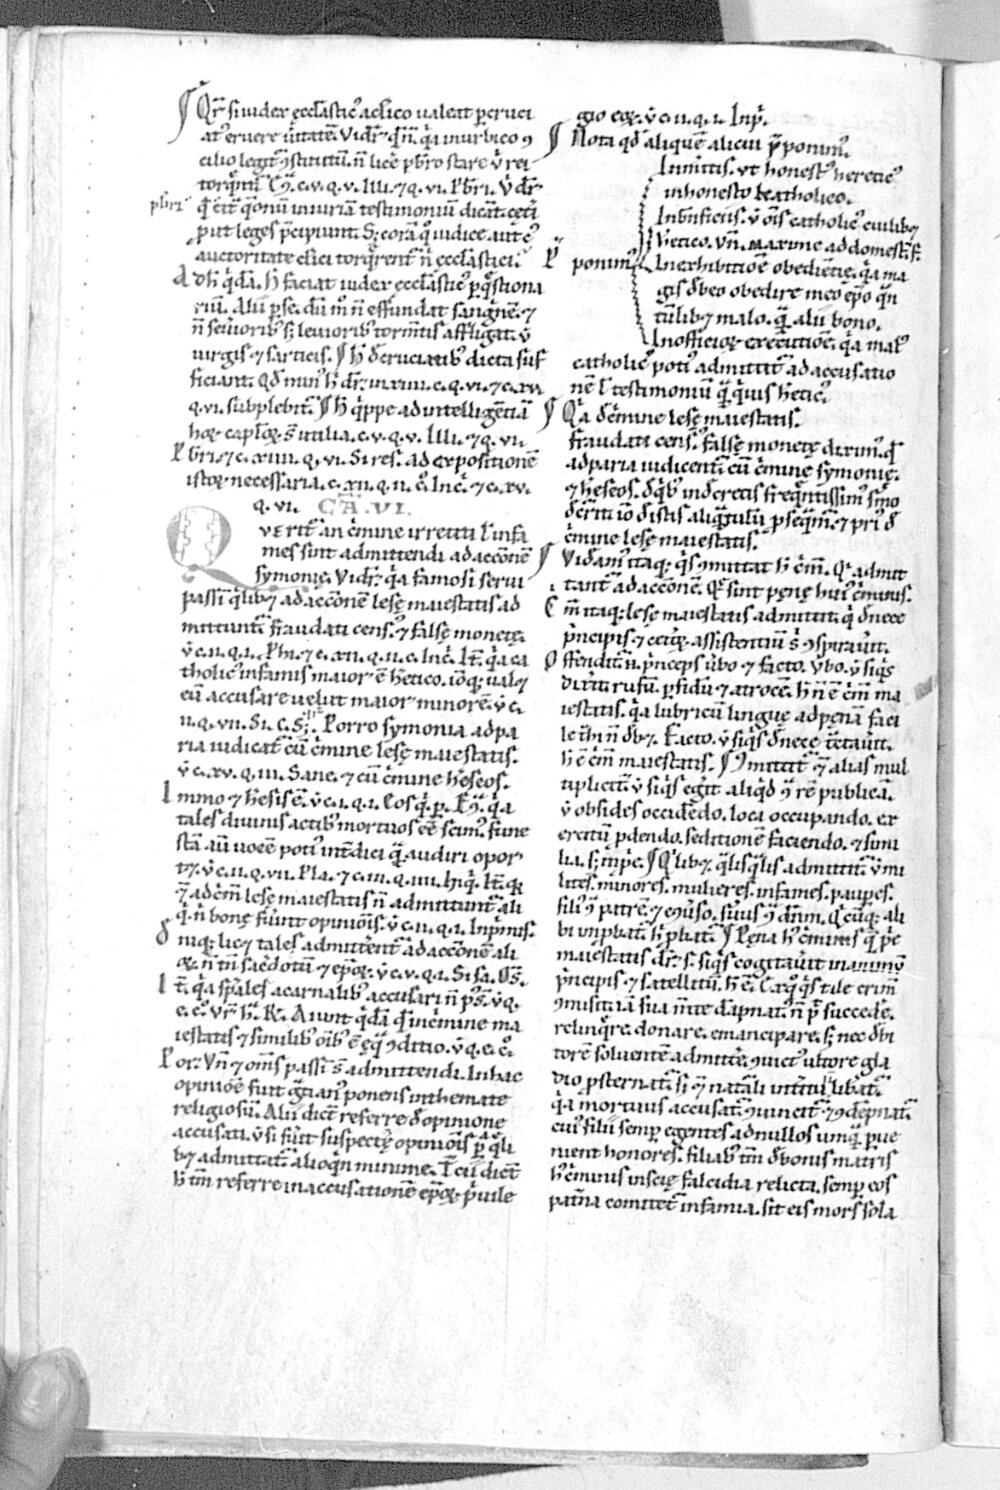 Qr̄ si iudex ęccl̄astic᾽ a cl̄ico ualeat per cruci
at᾽ eruere ueritatē. Vid᷑ qn̄. q̇a in urbico ɔ
cilio legit᷑ ɔstitutū. n̄ lice p̄bro stare
pbr̄i
put leges p̄cipiunt. S; corā q̊ iudice aut c᾽
auctoritate clīci torq̄rent᷑ n̄ ęccl̄astici.
Ad h̄ q̇dā. H̄ faciat iudex ęccl̄astic᾽ p q̄stiona
riū. Alii p se. dū m̊ n̄ effundat sanguinē. ⁊
n̄ seuiorib᾽ s; leuiorib᾽ torm̄tis affligat. ū
uirgis ⁊ sarticis. H̄ d̄ cruciatib᾽ dicta suf
ficiant.
q. vi. si uś plebit᷑. H̄ q̇ppe ad intelligentiā
hoꝝ cap̄loꝝ s̄ utilia. c. v. q. v. Illi. ⁊ q. vi.
Pbr̄i. ⁊ c. xiiii. q. vi. Si res. ad expositionē
istoꝝ necessaria. c. xii. q. ii. c̊. Inē. ⁊ c. xv.
q. vi. CĀ. VI.
Querit᷑ an c̄mine irretiti ł infa
mes sint admittendi ad accōnē
symonię. Vid᷑. q̇a famosi serui
passī q̇lib; ad accōnē lesę maiestatis ad
mittunt᷑. fraudati cens᾽ ⁊ falsę monetę.
ū c. ii. q. i. Phī. ⁊ c. xii. q. ii. c. Inē. It̄. q̇a ca
tholic᾽ infamis maior ē h̄etico. ioq; uale;
eū accusare uelut maior minorē. ū c.
ii. q. vii. Si. c. S;. Porro symonia ad pa
ria iudicat᷑ cū c̄mine lesę maiestatis.
ū c. xv. q. iii. Sane. ⁊ cū c̄mine h̄eseos.
Immo ⁊ h̄esis ē. ū c. i. q. i. Eos q̇. p.
tales diuinis actib᾽ mortuos ēē scim᾽. fune
stā aū uocē poti᾽ int̄dici q̄ audiri opor
t;. ū c. ii. q. vii. Pla. ⁊ c. iii. q. iiii.
ad c̄m̄ lesę maiestatis n̄ admittunt᷑ ali
q̇. n̄ bonę fuūit opiniōis. ū c. ii. q. i. Inp̄mis.
Deniq; lic; tales admitterent᷑ ad accōnē ali
oꝝ. n̄ tn̄ sac̄dotū ⁊ ep̄oꝝ. ū c. v. q. i. Si sa.
It̄. q̇a sp̄ales a carnalib᾽ accusari n̄ p̄s᷑.
Aiunt q̇dā q̄ in c̄mine ma
iestatis ⁊ similib᾽ oīb᾽ ē ęq̄ ɔditio. ū q. e. c̊.
Por. Vn̄ ⁊ oms̄ passī s̄ admittendi. In hac
opinioē fuit gr̄tian᾽ ponens in themate
religiosū. Alii dict̄ referre d̄ opinione
accusati. ū si fuūt suspectę opiniōis p̄ q̇li
b; admittat᷑ alioq̇n minime. T̄ cū dict̄
h̄ tm̄ referre in accusationē ep̄oꝝ p̄uile
gio eoꝝ. ū c. ii. q. i. Inp̄.
Nota qd̄ aliquē alicui p̄ponim᾽.
In mītis. ut honest᾽ heretic᾽
inhonesto catholico.
In b̄nficiis. ū oīs catholic᾽ cuilib;
h̄etico. Vn̄. maxime ad domest᷑. f.
P̄ ponim᾽ In exhibitiōe obedientię. q̇a ma
gis d̄beo obedire meo ep̄o q̄n
tū lib; malo. q̄ alii bono.
In officioꝝ executiōe. q̇a mal᾽
catholic᾽ poti᾽ admittit᷑ ad accusatio
nē ł testimoniū q̄ q̇uis h̄etic᾽.
Q̇a d̄ c̄mine lesę maiestatis.
fraudati cens᾽. falsę monetę dixim᾽. q̄
ad paria iudicent᷑ cū c̄mine symonię.
⁊ h̄eseos. d̄ q̇b᾽ in d̄cretis freq̄ntissim᾽ sermo
d̄c̄rit io d̄ istis aliq̄tulū p̄seq̄m᷑. ⁊ pri᾽ d̄
c̄mine lesę maiestatis.
Videam᾽ itaq; q̇s ɔmittat h̄ c̄m̄. Q̇ admit
tant᷑ ad accōnē. Q̄ sint penę hui᾽ c̄minis.
C̄m̄ itaq; lesę maiestatis admittit. q̇ d̄ nece
p̄ncipis ⁊ cet̄oꝝ assistentiū s̄ ɔspirauīt.
Offendit᷑ n̄. p̄nceps ūbo ⁊ facto. Vbo. ū siq̇s
dixīt rufū. p̄fidū ⁊ atrocē. h̄ n̄ ē c̄m̄ ma
iestatis. q̇a lubricū linguę ad penā faci
le t̄hi n̄ db;. Facto. ū siq̇s d̄ nece t̄etauīt.
h̄ ē c̄m̄ maiestatis. Ɔmittit᷑ ⁊ alias mul
tiplicit̄. ū siq̇s egīt aliq̇d ɔ rē publicā.
ū obsides occidēdo. loca occupando. ex
ercitū p̄dendo. seditionē faciendo. ⁊ simi
lia. s; imp̄c. Q̇lib; q̄lisq̄lis admittit᷑. ū mi
lites. minores. mulieres. infames. paup̄es.
fili᾽ ɔ patrē. ⁊ eɔuso. suus ɔ dn̄m. Q̇cūq; ali
bi inp̄bat᷑. h̄ p̄bat᷑. Pena h᾽ c̄minis
maiestatis dr̄. s. siq̇s cogitauīt in animū
p̄ncipis ⁊ satellitū. h̄ ē. q̇s tīle crim̄
ɔmisīt. iā sua m̄te dāpnat᷑. n̄ p̄ succede.
relinq̇re. donare. emancipare. s; nec d̄bi
torē soluentē admitte. ɔuict᾽ ultore gla
dio p̄sternat᷑. s; ⁊ natali int̄itu libat᷑
q̇a mortuus accusat᷑. ɔuincit᷑. ⁊ ɔdēpnat᷑.
cui᾽ filii semp̄ egentes ad nullos umq̄ p̄ue
nient honores. filiab᾽ tm̄ d̄ bonis matris
h᾽ c̄minis inscię falcidia relicta. semp̄ eos
pat̄na comitet᷑ infamia. sit eis mors sola